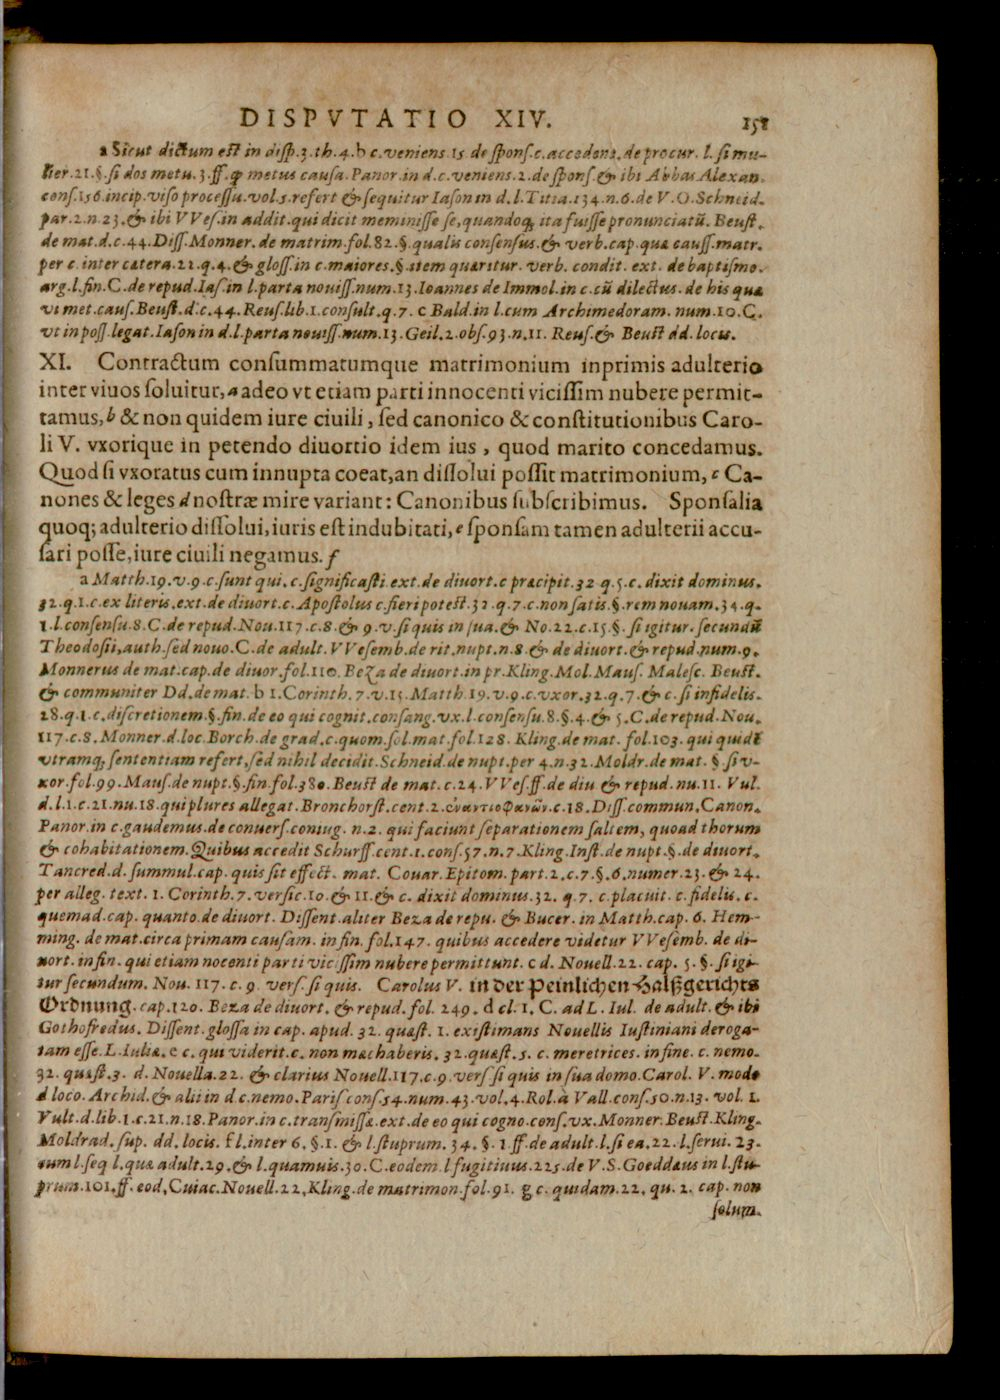 DISPVTATIO XIV. 151
a Sicut dictum est in disp.3.th.4.b c.veniens.15 de spons.c.accedens.de procur. l. si mu-
lier.21.§.si dos metu.3.ff.q metus causa.Panor.in d.c.veniens.2.de spons.& ibi Abbas Alexan.
cons.156.incip.viso processu.vol.5.refert & sequitur Iason in d.l.Titia.134.n.6.de V.O.Schneid.
par.2.n.23.& ibi VVes.in addit.qui dicit meminisse se,quandoq; ita fuisse pronunciatũ. Beust.
de mat.d.c.44.Diss.Monner.de matrim.fol.82.§.qualis consensus.& verb.cap.quæ causs.matr.
per c.inter cætera.22.q.4.& gloss.in c.maiores.§.item quæritur. verb. condit. ext. de baptismo.
arg.l.fin.C.de repud.Ias.in l.parta nouiss.num.13.Ioannes de Immol.in c.cũ dilectus. de his quæ
vi met.caus.Beust.d.c.44.Reus.lib.1.consult.q.7. c Bald.in l.cum Archimedoram. num.10.C.
vt in poss.legat.Iason in d.l.parta nouiss.num.13.Geil.2.obs.93.n.11. Reus.& Beust dd.locis.
XI. Contractum consummatumque matrimonium inprimis adulterio
inter viuos soluitur,a adeo vt etiam parti innocenti vicissim nubere permit-
tamus,b & non quidem iure ciuili, sed canonico & constitutionibus Caro-
li V. vxorique in petendo diuortio idem ius, quod marito concedamus.
Quod si vxoratus cum innupta coeat,an dissolui possit matrimonium, c Ca-
nones & leges d nostræ mire variant: Canonibus subscribimus. Sponsalia
quoq; adulterio dissolui,iuris est indubitati, e sponsam tamen adulterii accu-
sari posse,iure ciuili negamus. f
a Matth.19.v.9.c.sunt qui. c.significasti.ext.de diuort.c præcipit.32 q.5.c. dixit dominus.
32.q.1.c.ex literis.ext.de diuort.c. Apostolus c.fieri potest.32.q.7.c.non satis.§.rem nouam.34.q.
1.l.consensu.8.C.de repud.Nou.117.c.8.& 9.v.si quis in sua.& No.22.c.15.§. si igitur.secundũ
Theodosii,auth.sed nouo.C.de adult.VVesemb.de rit.nupt.n.8 & de diuort.& repud.num.9.
Monnerus de mat.cap.de diuor.fol.110. Beza de diuort.in pr.Kling.Mol.Maus. Malesc. Beust.
& communiter Dd.de mat. b 1.Corinth.7.v.15.Matth.19.v.9.c.vxor.32.q.7.& c.si infidelis.
28.q.1.c.discretionem.§.fin.de eo qui cognit.consang.vx.l.consensu.8.§.4.& 5.C.de repud.Nou.
117.c.8.Monner.d.loc.Borch.de grad.c.quom.sol.mat.fol.128. Kling.de mat.fol.103. qui quidẽ
vtramq; sententiam refert,sed nihil decidit.Schneid.de nupt.per 4.n.32.Moldr.de mat. §.si v-
xor.fol.99.Maus.de nupt.§.fin.fol.380.Beust de mat.c.24.VVes.ff.de diu & repud. nu.11. Vul.
d.l.1.c.21.nu.18.qui plures allegat.Bronchorst.cent.2.ἐναντιοφανῶν.c.18.Diss.commun.Canon.
Panor.in c.gaudemus.de conuers.coniug. n.2. qui faciunt separationem saltem, quoad thorum
& cohabitationem.Quibus accedit Schurff.cent.1.cons.57.n.7.Kling.Inst.de nupt.§.de diuort.
Tancred.d.summul.cap. quis sit effect. mat. Couar.Epitom.part.2.c.7.§.6.numer.23.& 24.
per alleg. text. 1. Corinth.7. versic.10.& 11.& c. dixit dominus.32. q.7. c.placuit. c. fidelis. c.
quemad.cap. quanto.de diuort. Dissent.aliter Beza de repu. & Bucer. in Matth.cap. 6. Hem-
ming. de mat.circa primam causam. in fin.fol.147. quibus accedere videtur VVesemb. de di-
uort.in fin.qui etiam nocenti parti vicissim nubere permittunt. c d. Nouell.22. cap. 5.§. si igi-
tur secundum. Nou. 117. c. 9. vers. si quis. Carolus V. in der Peinlichen Halßgerichts
Ordnung. cap.120. Beza de diuort. & repud.fol. 249. d cl. 1. C. ad L. Iul. de adult. & ibi
Gothofredus. Dissent.glossa in cap.apud. 32. quæst. 1. existimans Nouellis Iustiniani deroga-
tam esse.L.Iulia. e c. qui viderit.c. non mœchaberis. 32.quæst.5. c. meretrices. in fine. c. nemo.
32. quæst.3. d. Nouella.22. & clarius Nouell.117.c.9.vers.si quis in sua domo.Carol. V. modo
d loco. Archid.& alii in d c.nemo.Paris cons.54.num.43.vol.4.Rol.à Vall.cons.50.n.13. vol. 1.
Vult.d.lib.1.c.21.n.18.Panor.in c.transmissæ.ext.de eo qui cogno.cons.vx.Monner.Beust.Kling.
Moldrad. sup. dd. locis. f l.inter 6.§.1.& l.stuprum. 34. §. 1.ff.de adult.l.si ea.22.l.serui. 23.
cum l.seq l.quæ adult.29.& l.quamuis.30.C.eodem.l fugitiuus.225.de V.S.Goeddæus in l.stu-
prum.101.ff.eod.Cuiac.Nouell.22.Kling.de matrimon.fol.91. g c. quidam.22. qu. 2. cap. non
solum.